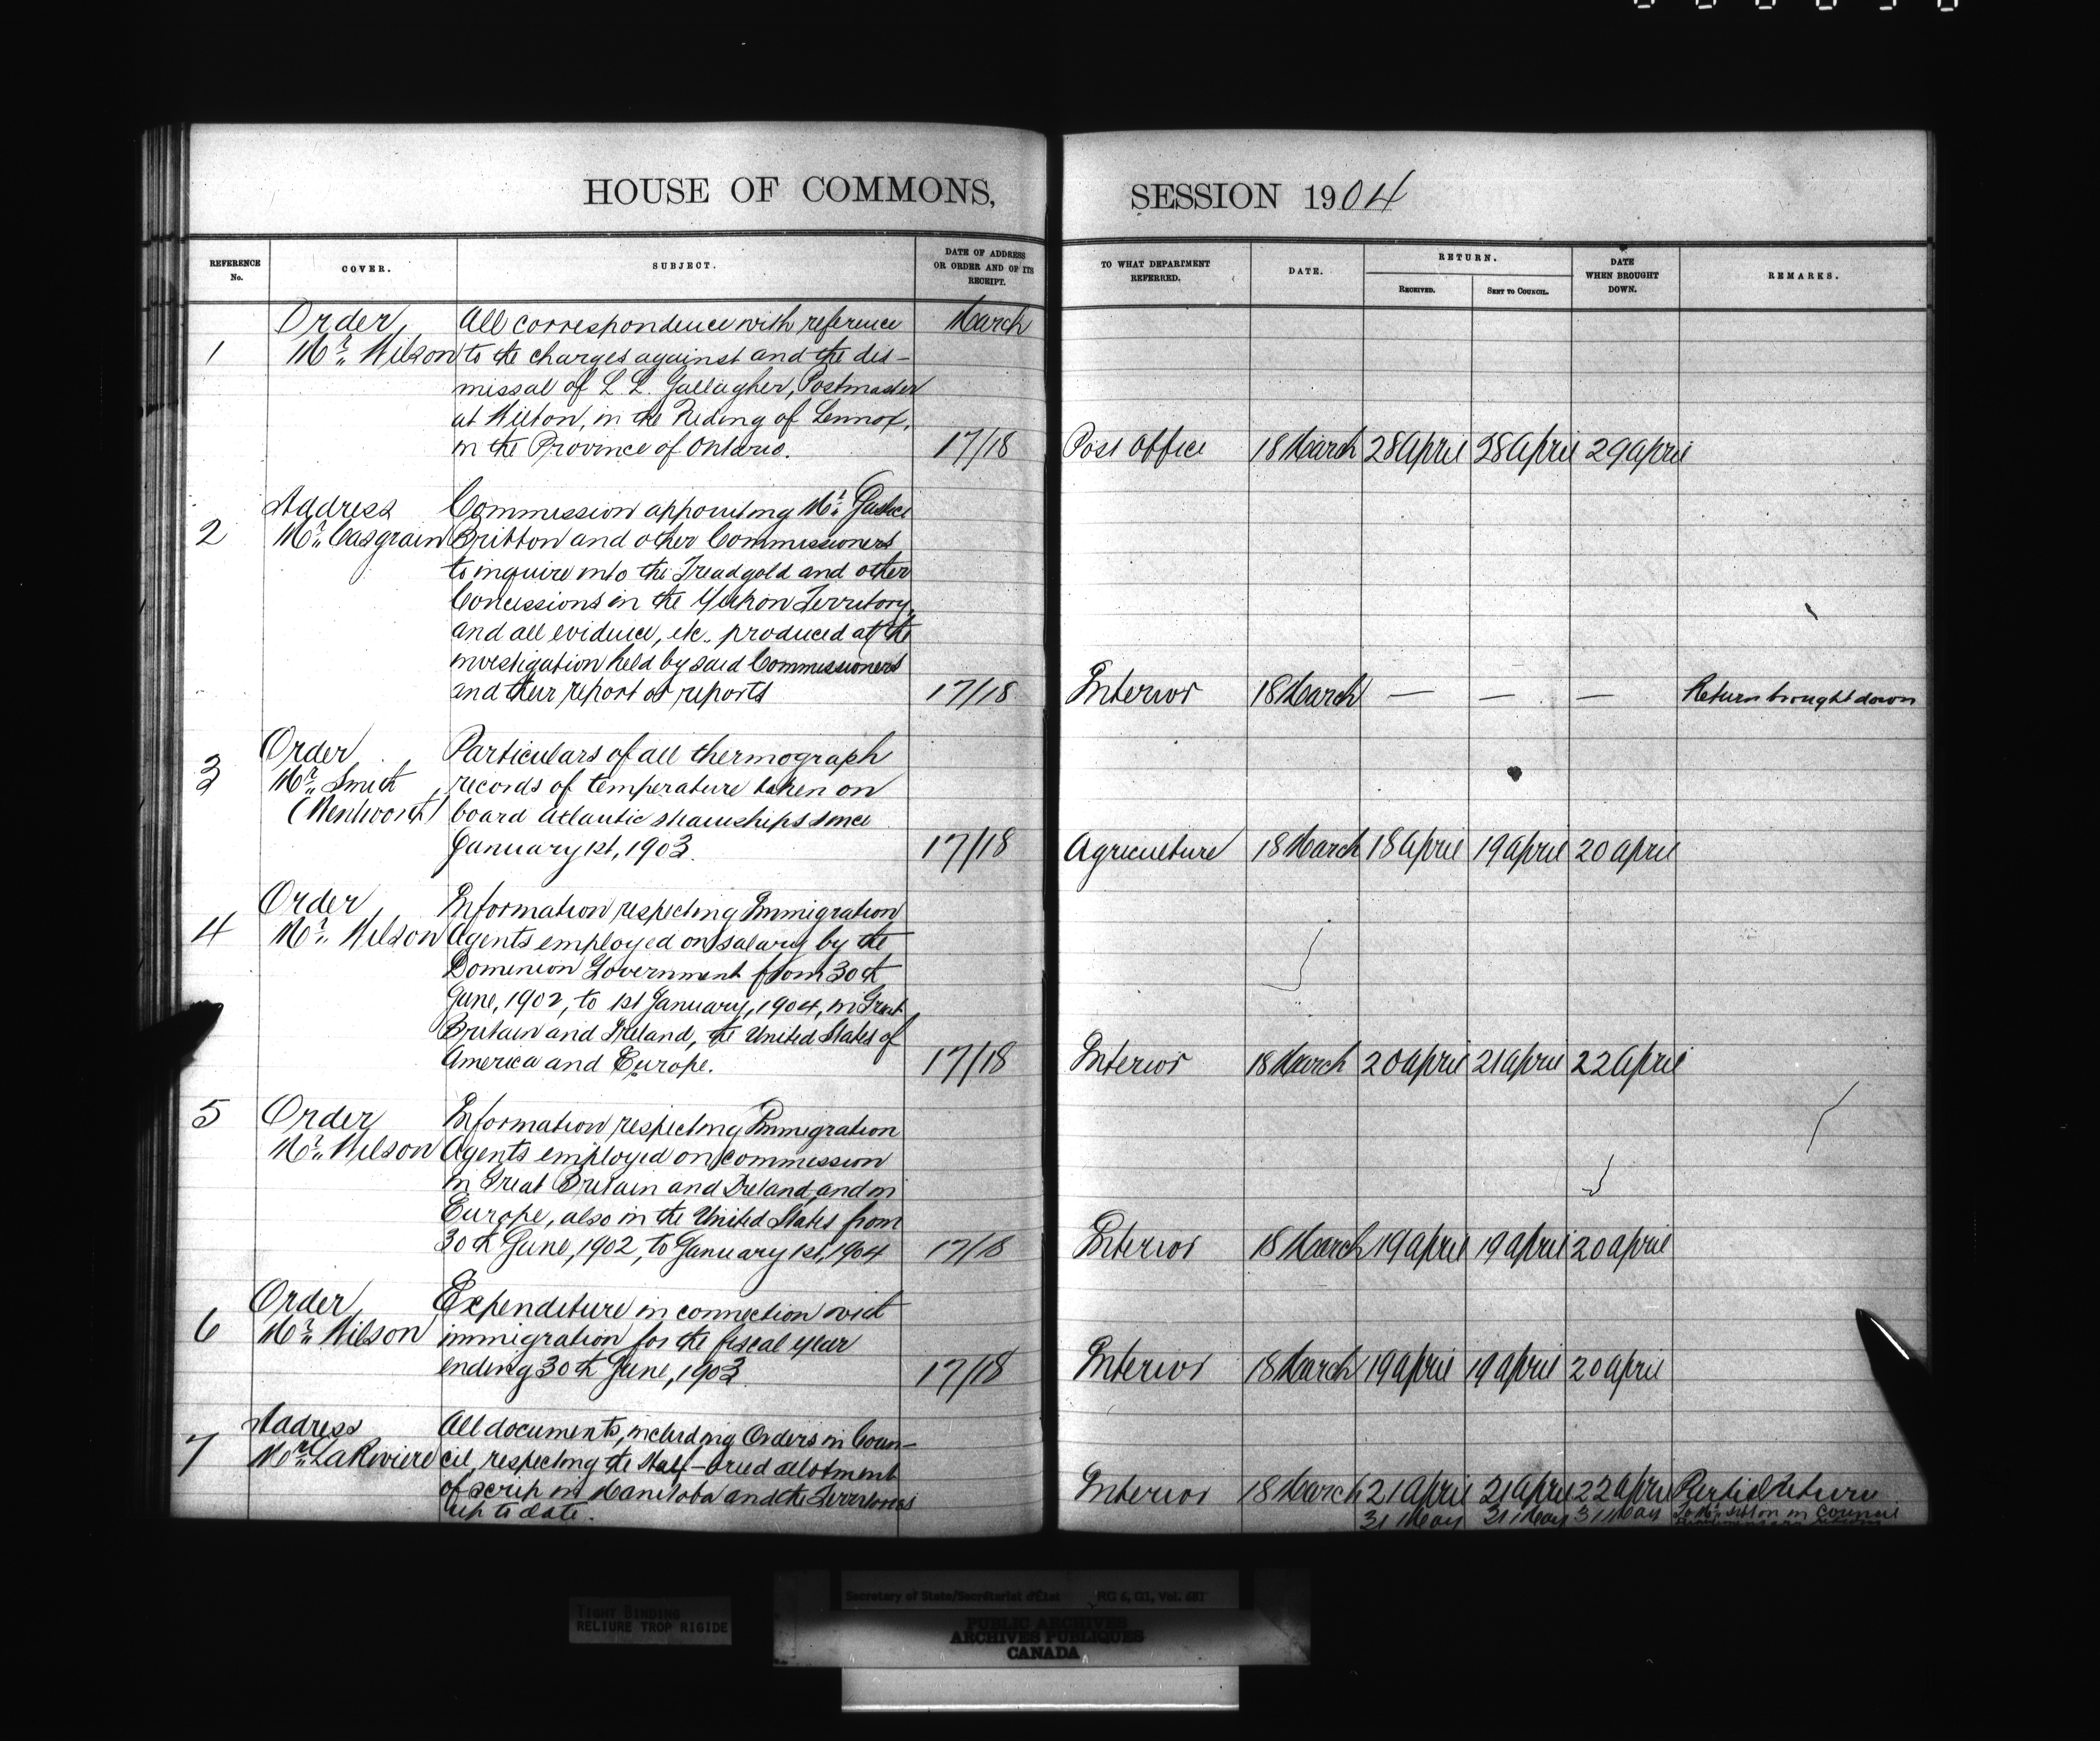 HOUSE OF COMMONS, SESSION 1904
REFERENCE No. COVER. SUBJECT. DATE OF ADDRESS OR ORDER AND OF ITS RECEIPT. TO WHAT DEPARTMENT REFERRED. DATE. RETURN. RECEIVED. SENT TO COUNCIL. DATE WHEN BROUGHT DOWN. REMARKS.
Order, All correspondence with reference March
1 Mr. Wilson to the charges against and the dis-
missal of L. L. Gallagher, Postmaster
at Wilton, in the Riding of Lennox,
in the Province of Ontario. 17/18 Post Office 18 March 28 April 28 April 29 April
Address Commission appointing Mr. Justice
2 Mr. Casgrain Britton and other Commissioners
to inquire into the Treadgold and other
Concessions in the Yukon Territory,
and all evidence, etc., produced at the
investigation held by said Commissioners
and their report or reports 17/18 Interior 18 March — — — Return brought down
Order, Particulars of all thermograph
3 Mr. Smith records of temperature taken on
(Wentworth) board Atlantic steamships since
January 1st, 1903. 17/18 Agriculture 18 March 18 April 19 April 20 April
Order, Information respecting Immigration
4 Mr. Wilson Agents employed on salary by the
Dominion Government from 30th
June, 1902, to 1st January, 1904, in Great
Britain and Ireland, the United States of
America and Europe. 17/18 Interior 18 March 20 April 21 April 22 April
5 Order Information respecting Immigration
Mr. Wilson Agents employed on commission
in Great Britain and Ireland, and in
Europe, also in the United States from
30th June, 1902, to January 1st, 1904 17/18 Interior 18 March 19 April 19 April 20 April
Order, Expenditure in connection with
6 Mr. Wilson immigration for the fiscal year
ending 30th June, 1903 17/18 Interior 18 March 19 April 19 April 20 April
Address All documents, including Orders in Coun-
7 Mr. LaRiviere cil, respecting the Half-breed allotment
of scrip in Manitoba and the Territories Interior 18 March 21 April 21 April 22 April Partial return
up to date. 31 May 31 May 31 May in Council
TIGHT BINDING
RELIURE TROP RIGIDE
Secretary of State/Secrétariat d'État RG 6, G1, Vol. 681
PUBLIC ARCHIVES
ARCHIVES PUBLIQUES
CANADA